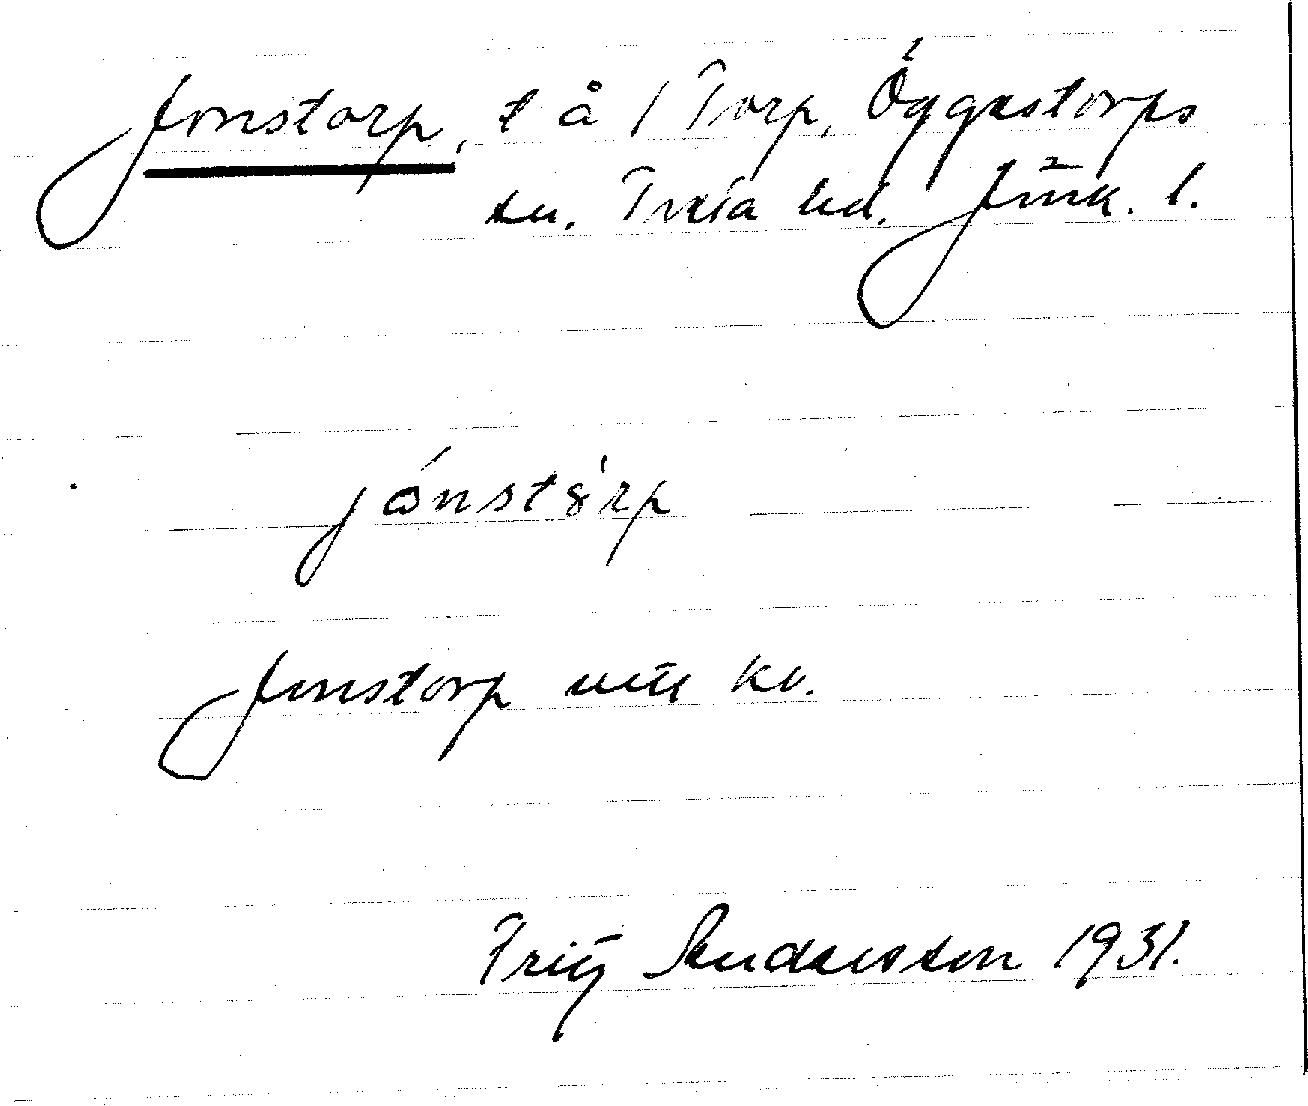 Jonstorp, t å 1 Torp, Öggestorps
sn. Tveta hd. Jönk. l.
jónstȣ̀rp
Jonstorp
Fritz Andersson 1931.